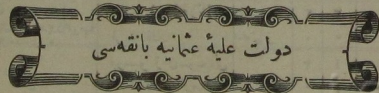 دولت علیهٔ عثمانیه بانقه‌سی